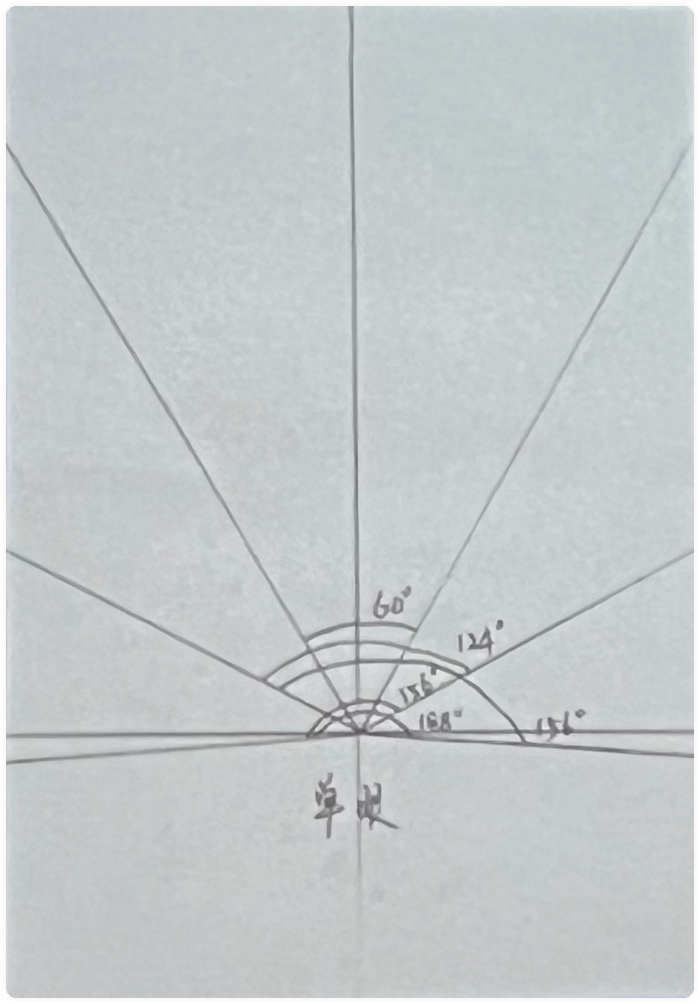 60°
124°
156°
188°
156°
单眼